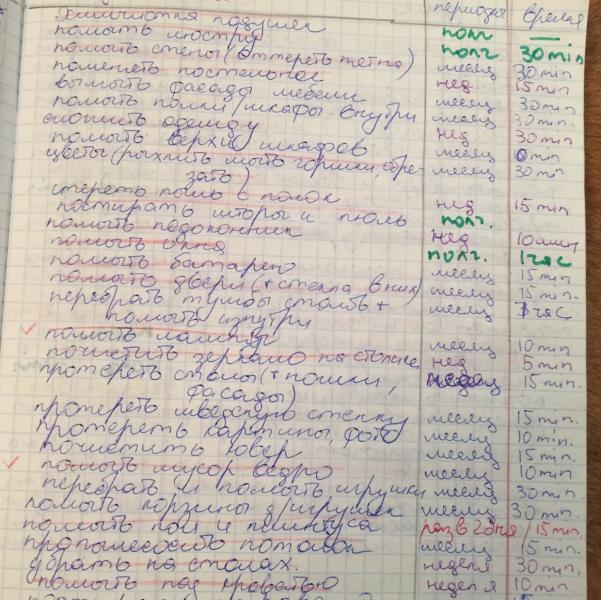 период время
химчистка подушек полг —
помыть люстру полг 30 min
помыть стены (оттереть пятна) месяц 30 min
поменять постельное нед 15 min
вымыть фасады мебели месяц 30 min
помыть полки/шкафы внутри месяц 30 min.
сложить одежду нед 30 min
помыть верхи шкафов месяц 0 min
цветы (рыхлить мыть горшки, обре- месяц 30 min
зать)
стереть пыль с полок нед 15 min
постирать шторы и тюль полг.
помыть подоконник нед 10 мин
помыть окна полг. 1 час
помыть батарею месяц 15 min
помыть двери (+ стекла в них) месяц 15 min.
перебрать тумбы столов + месяц 1 час
помыть изнутри
помыть лампы месяц 10 min
почистить зеркало на столике нед 5 min
протереть столы (+ полки, 15 min.
фасады)
протереть шведскую стенку месяц 15 min.
протереть картины, фото месяц 10 min.
почистить ковер месяц 15 min.
помыть мусор ведро месяц 10 min
перебрать и помыть игрушки месяц 30 min.
помыть корзины д/игрушек месяц 30 min.
помыть пол и плинтуса раз в 2 дня / 15 min.
пропылесосить потолок месяц 15 min.
убрать на столах. неделя 30 min.
помыть под кроватью неделя 10 min.